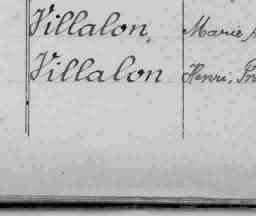 Villalon, Marie
Villalon Henri,